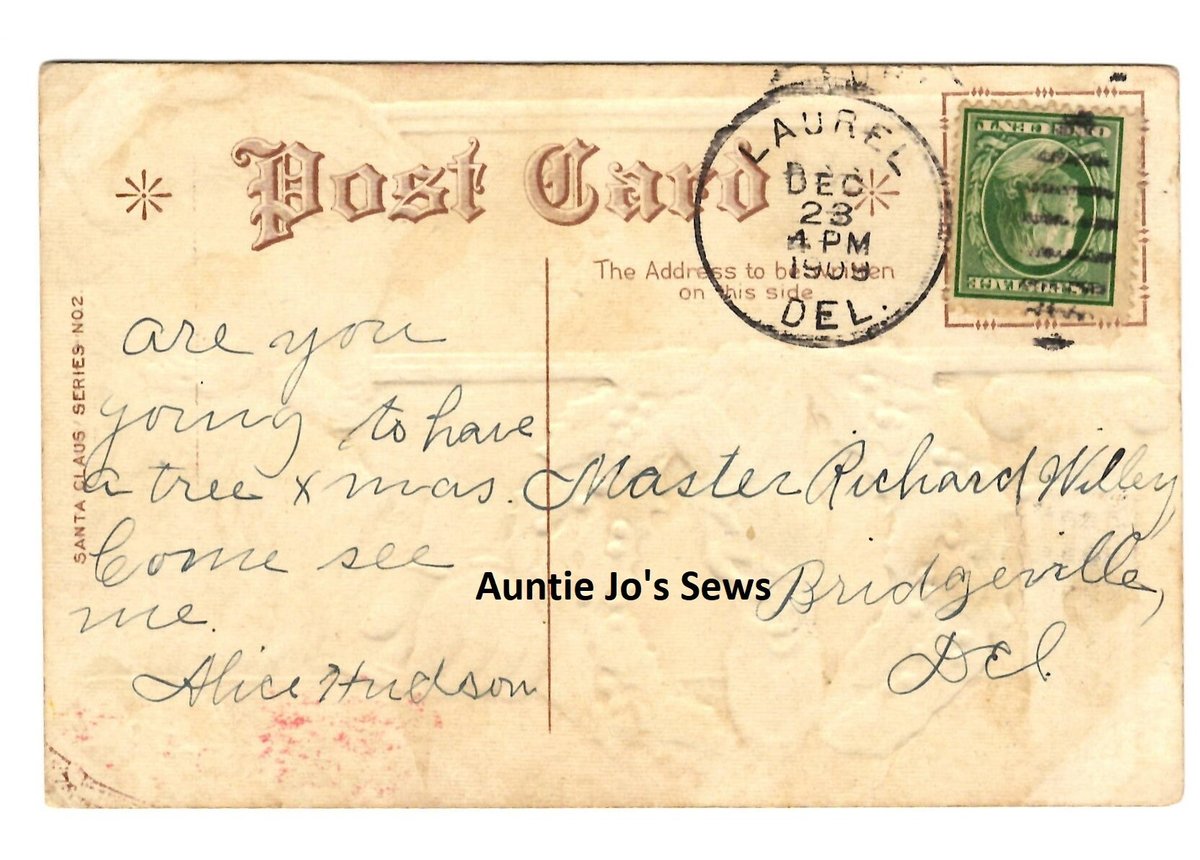 Post Card
LAUREL
DEC
23
4 PM
1909
DEL.
ONE CENT
POSTAGE
The Address to be written
on this side
SANTA CLAUS SERIES NO. 2
are you
going to have
a tree xmas.
Come see
me.
Alice Hudson
Master Richard Willey
Bridgeville,
Del.
Auntie Jo's Sews